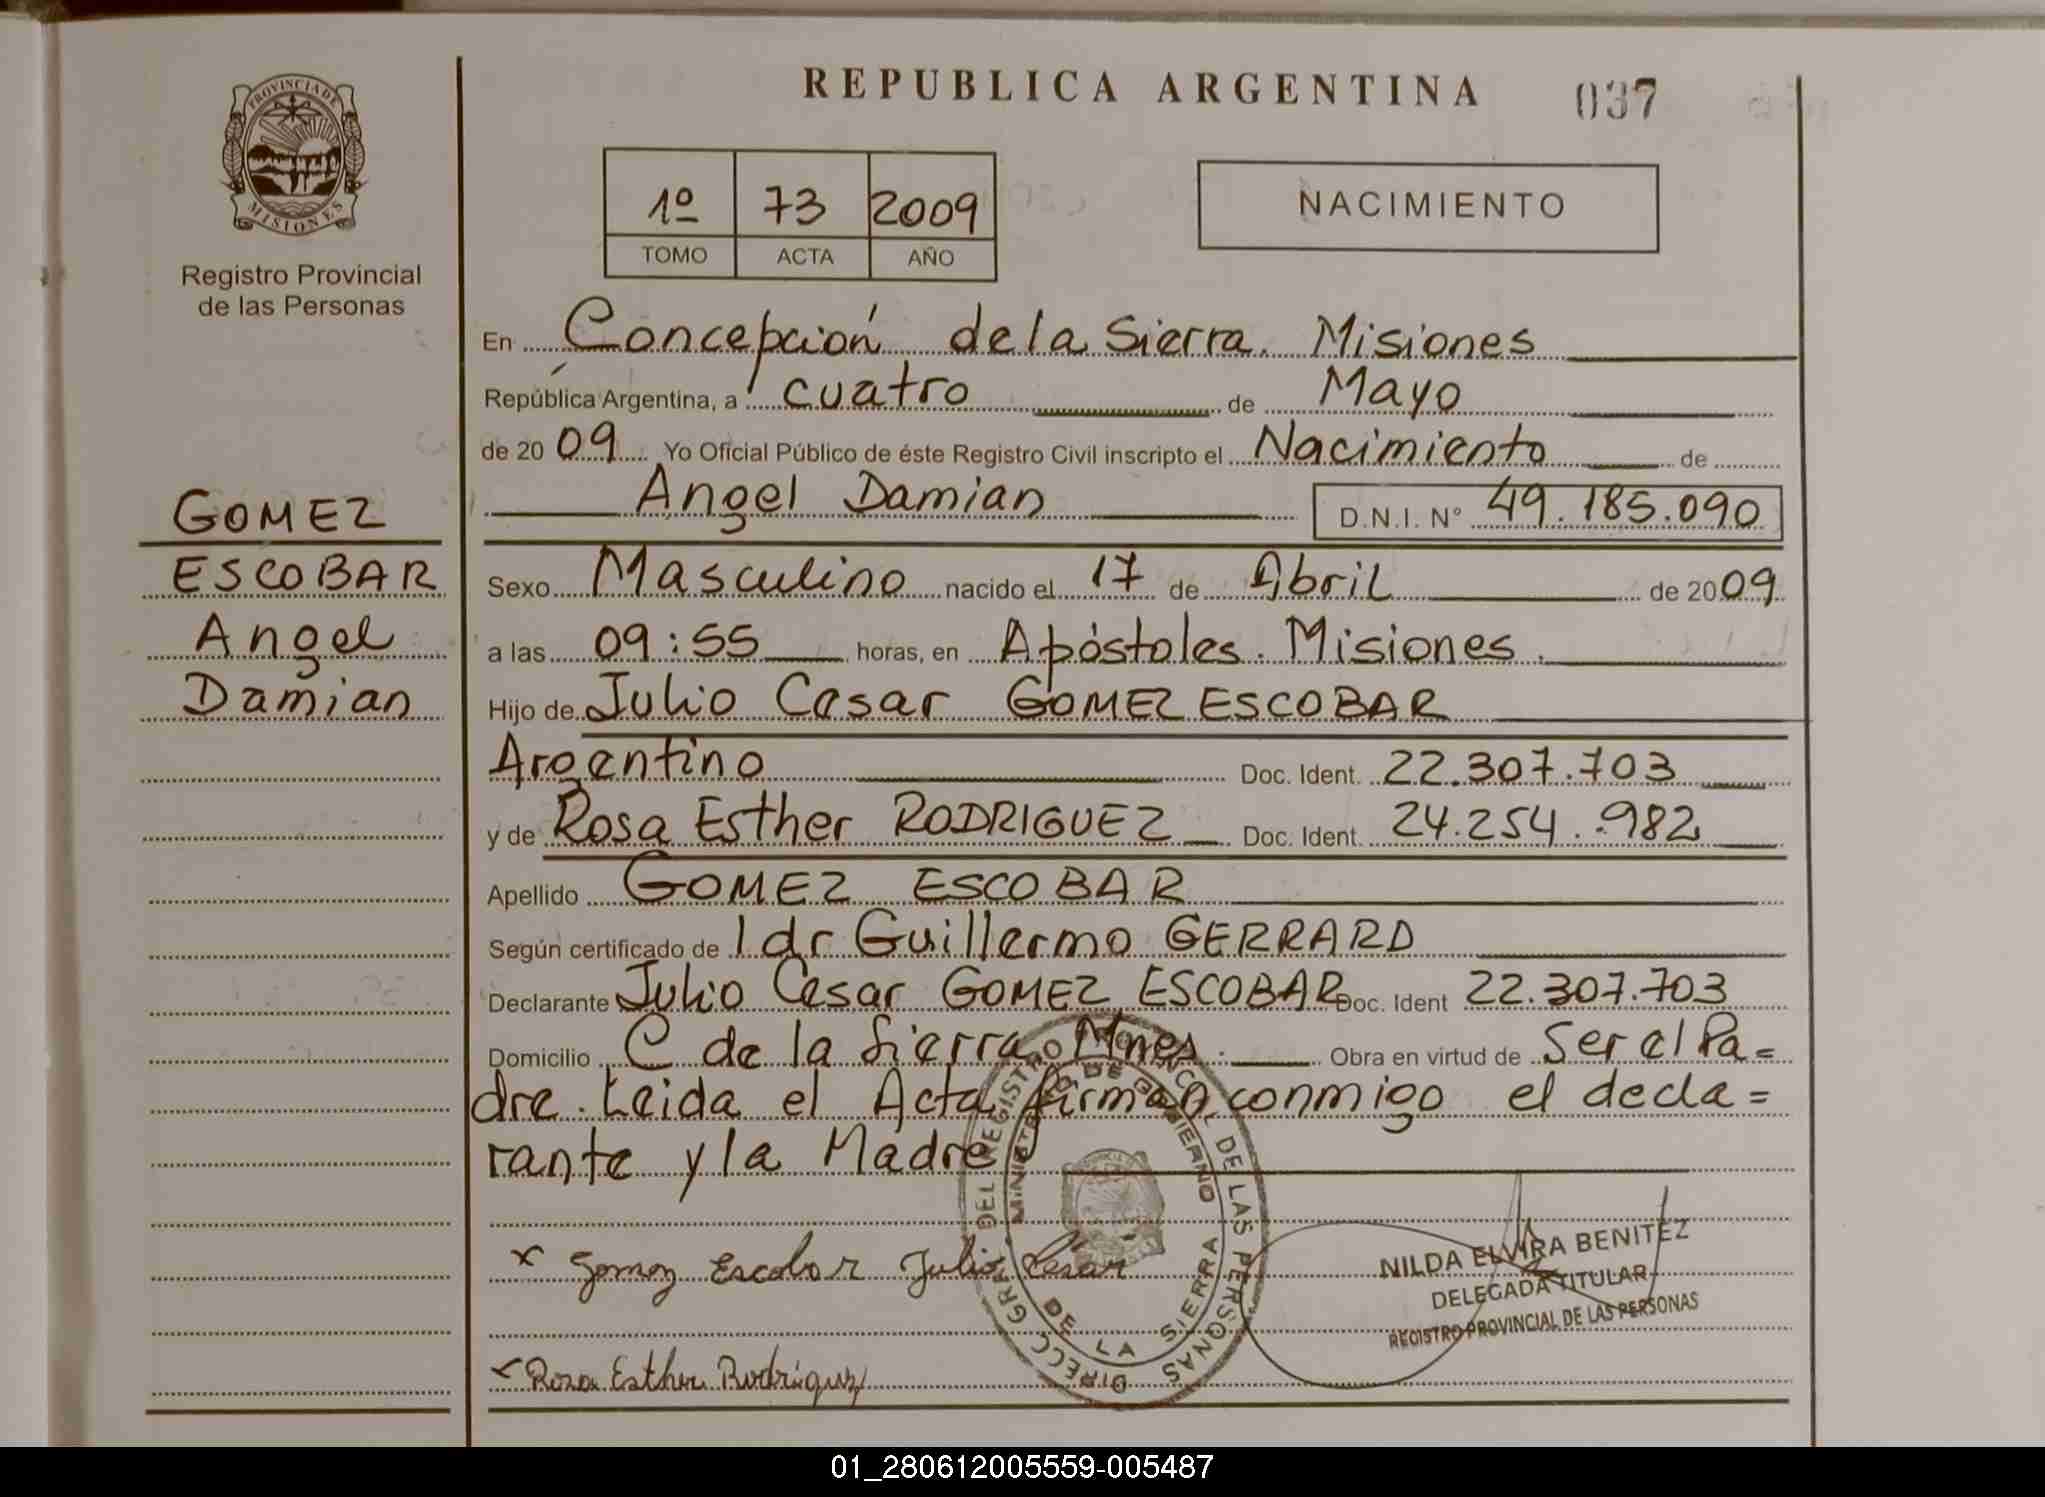 REPUBLICA ARGENTINA
037
PROVINCIA DE MISIONES
Registro Provincial
de las Personas
1º 73 2009
TOMO ACTA AÑO
NACIMIENTO
GOMEZ
ESCOBAR
Angel
Damian
En Concepción de la Sierra. Misiones
República Argentina, a cuatro de Mayo
de 2009 Yo Oficial Público de éste Registro Civil inscripto el Nacimiento de
Angel Damian D.N.I. N° 49.185.090
Sexo Masculino nacido el 17 de Abril de 2009
a las 09:55 horas, en Apóstoles. Misiones.
Hijo de Julio Cesar GOMEZ ESCOBAR
Argentino Doc. Ident. 22.307.703
y de Rosa Esther RODRIGUEZ Doc. Ident. 24.254.982
Apellido GOMEZ ESCOBAR
Según certificado de l dr Guillermo GERRARD
Declarante Julio Cesar GOMEZ ESCOBAR Doc. Ident 22.307.703
Domicilio C de la Sierra. Mnes. Obra en virtud de Ser el Pa=
dre. Leida el Acta firman conmigo el decla=
rante y la Madre
x Gomez Escobar Julio Cesar
x Rosa Esther Rodriguez
DIRECC. GRAL. DEL REGISTRO PROVINCIAL DE LAS PERSONAS
MINISTERIO DE GOBIERNO
DE LA SIERRA
NILDA ELVIRA BENITEZ
DELEGADA TITULAR
REGISTRO PROVINCIAL DE LAS PERSONAS
01_280612005559-005487